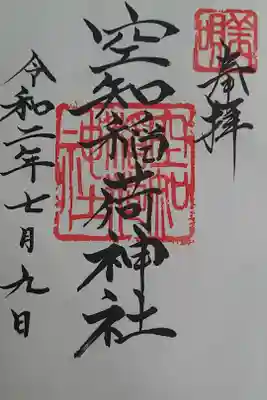 奉拝
空知稲荷神社
令和二年七月九日